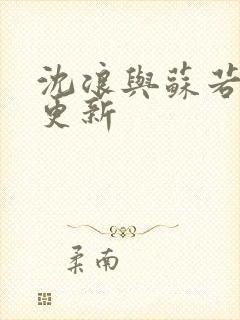 沈浪與蘇若
更新
柔南